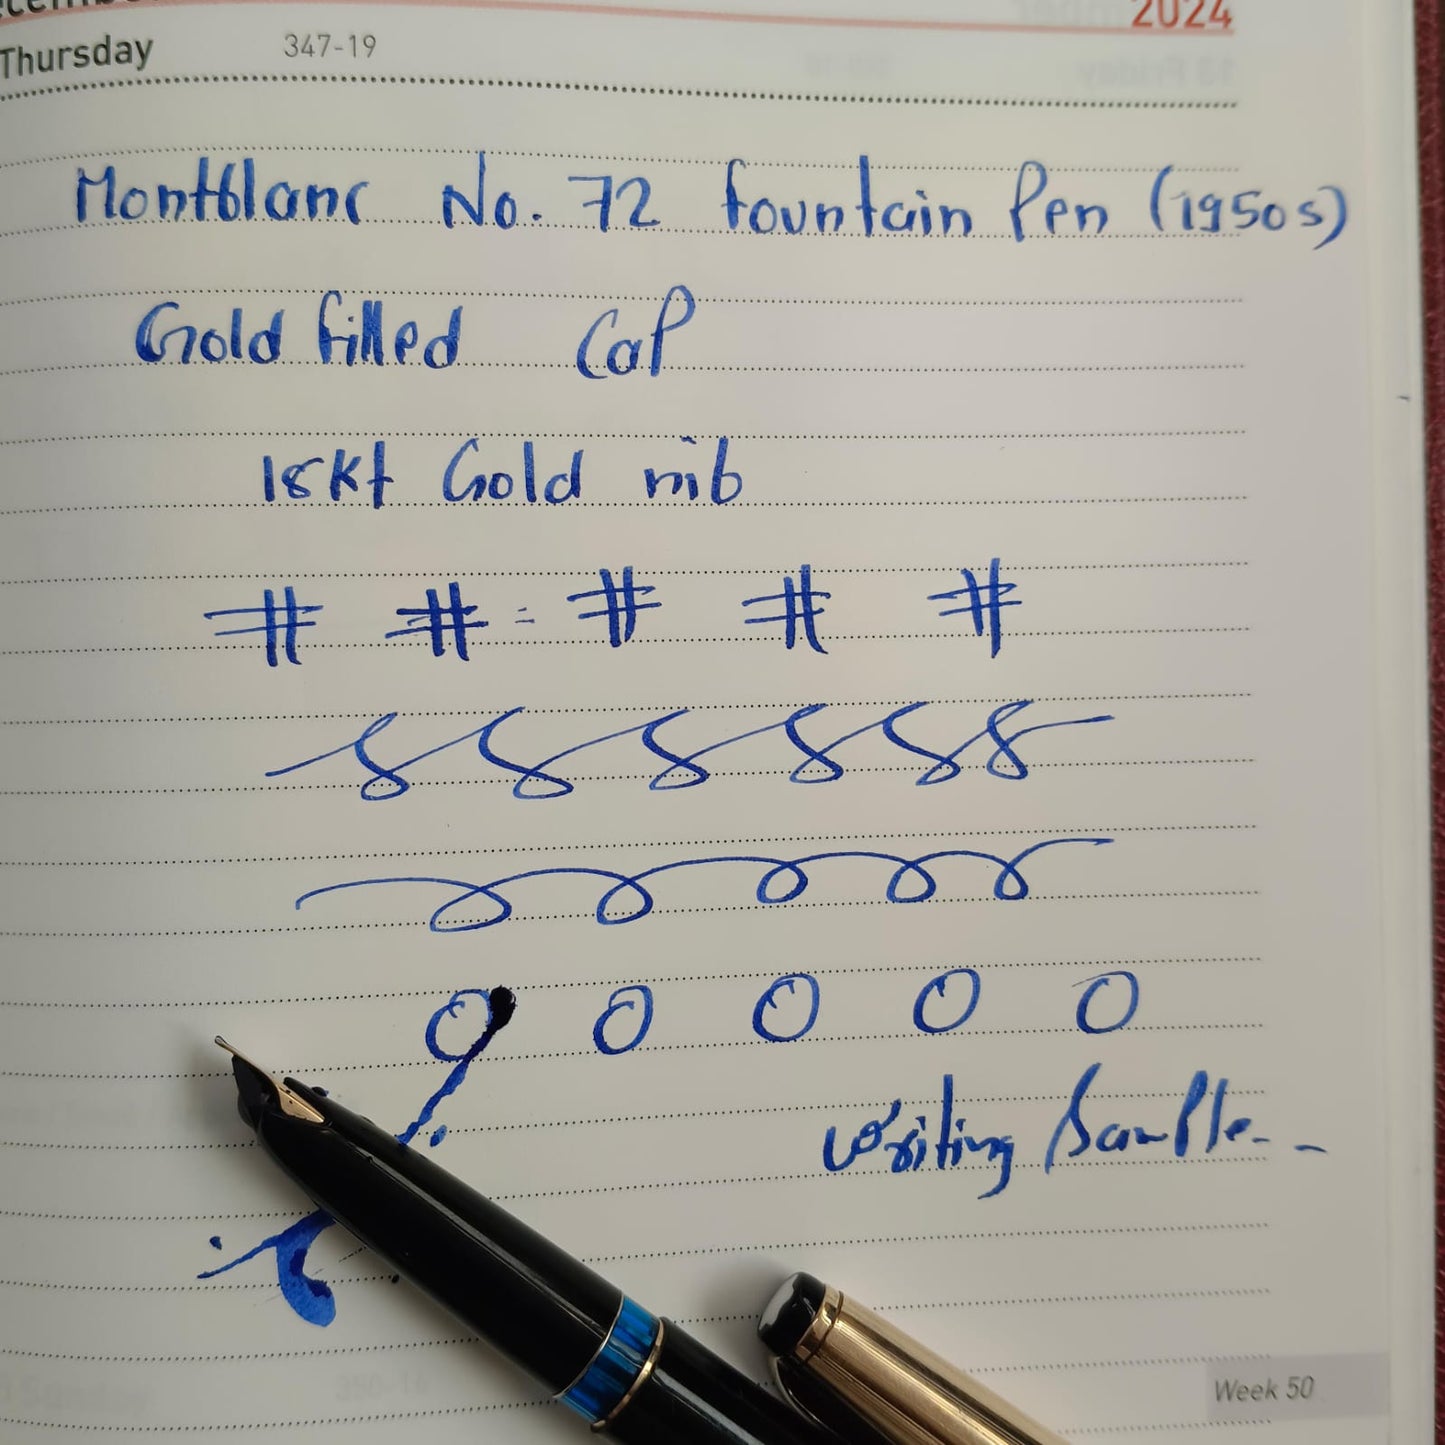 2024
Thursday 347-19
Montblanc No. 72 fountain Pen (1950s)
Gold filled Cap
18Kt Gold nib
# # = # # #
8 8 8 8 8 8
O O O O O
Writing Sample - -
Week 50